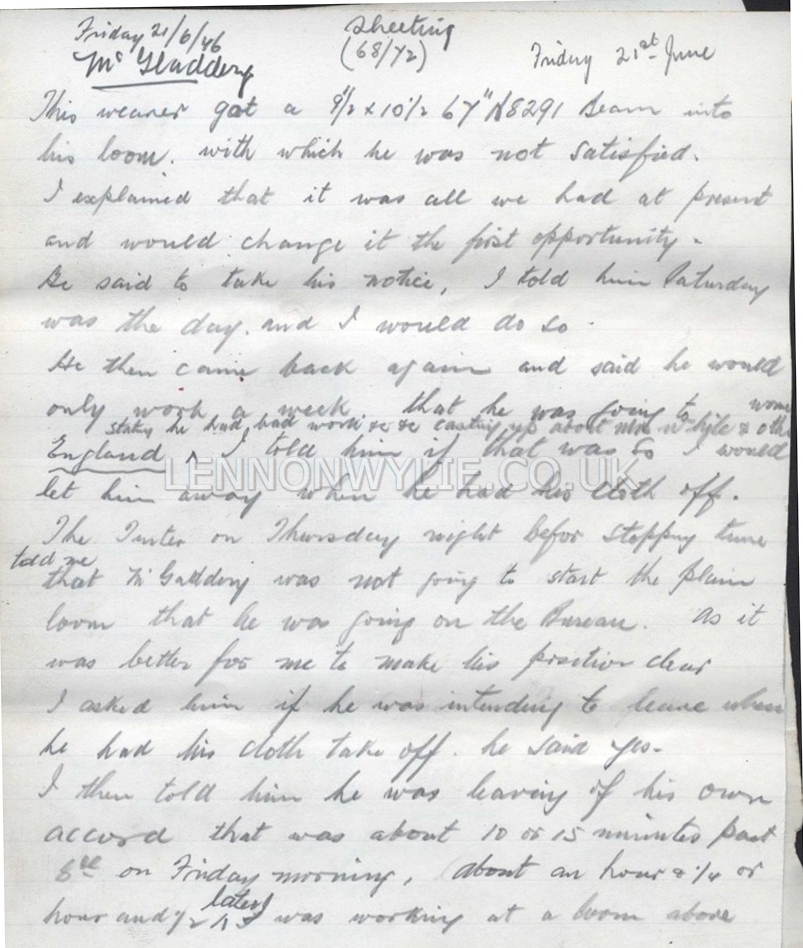 Friday 21/6/46
Sheeting
(68/72)
Friday 21st June
Mc Gladdery
This weaver got a 9½ x 10½ 67" N8291 Beam into
his loom. with which he was not satisfied.
I explained that it was all we had at present
and would change it the first opportunity.
He said to take his notice, I told him Saturday
was the day. and I would do so.
He then came back again and said he would
only work a week that he was going to
stating he had bad work &c &c casting up about
England ^ I told him if that was so I would
LENNONWYLIE.CO.UK
let him away when he had his cloth off.
The Tenter on Thursday night befor stopping time
told me
that McGaddery was not going to start the plain
loom that he was going on the Bureau. As it
was better for me to make his position clear
I asked him if he was intending to leave when
he had his cloth take off. he said yes.
I then told him he was leaving of his own
accord that was about 10 or 15 minutes past
8 on Friday morning, about an hour & ¼ or
later
hour and ½ ^ I was working at a loom above